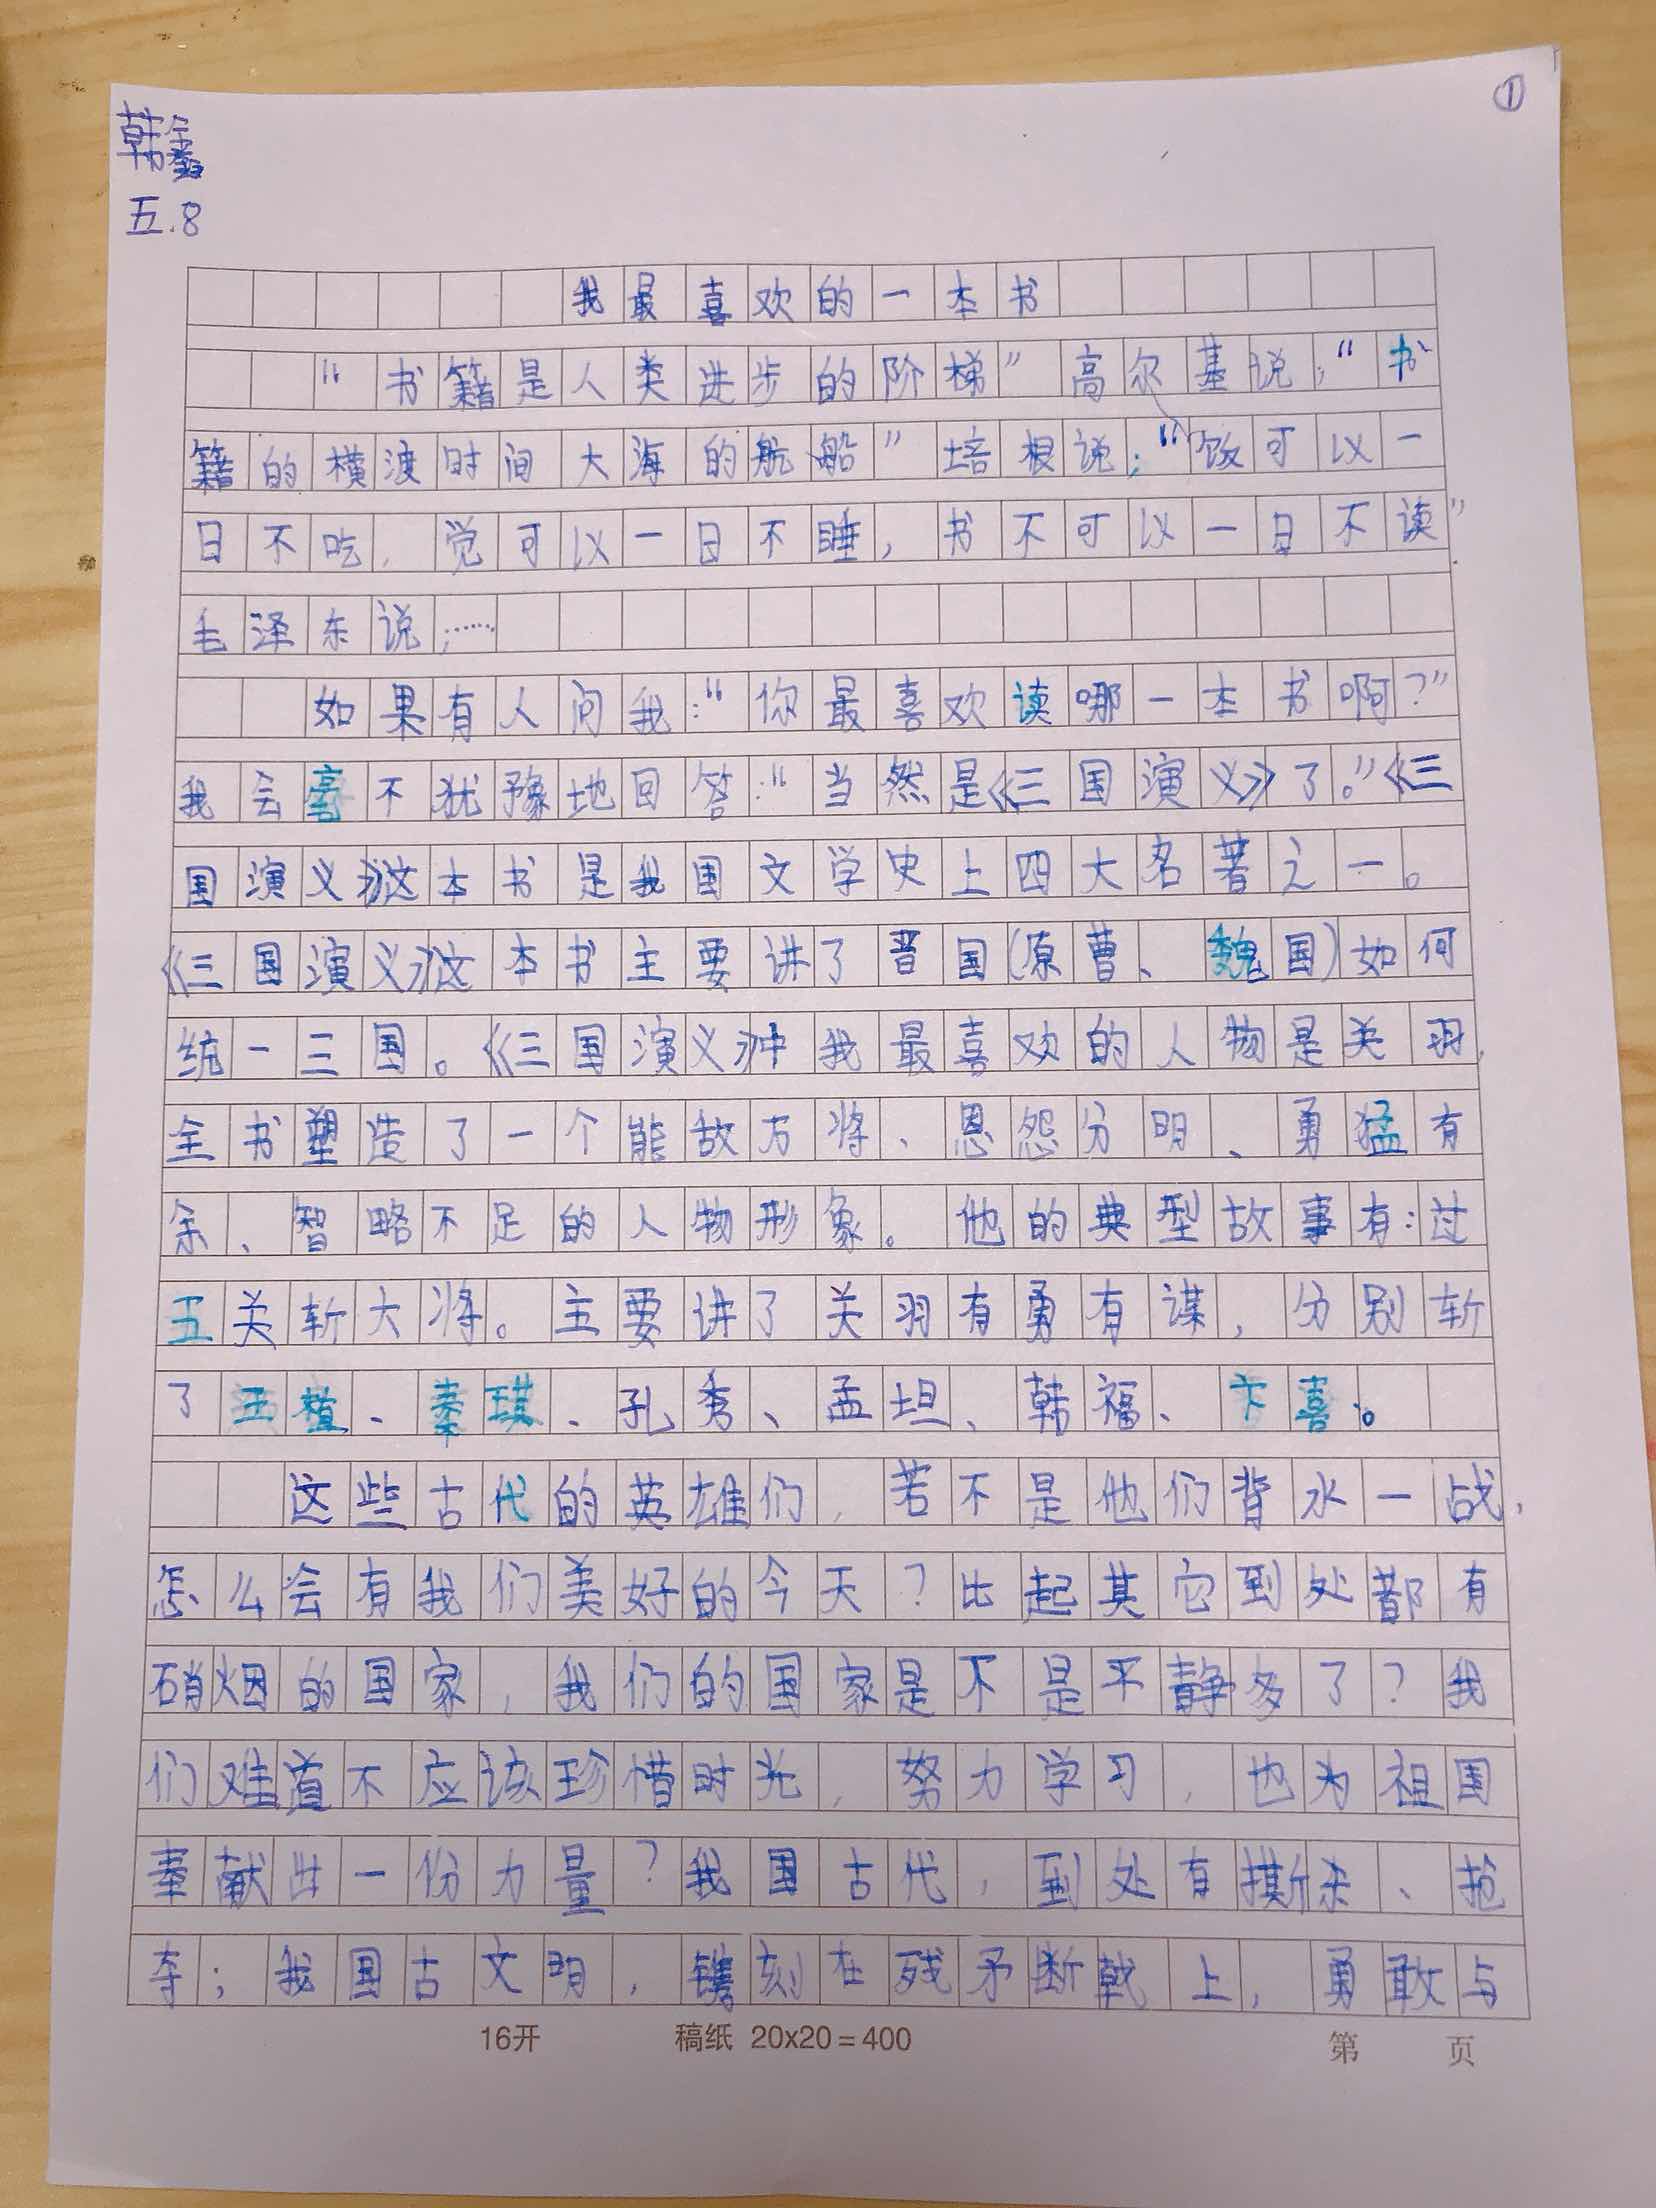 ①
韩鑫
五.8
我最喜欢的一本书
“书籍是人类进步的阶梯”高尔基说;“书
籍的横渡时间大海的航船”培根说;“饭可以一
日不吃,觉可以一日不睡,书不可以一日不读”
毛泽东说;……
如果有人问我:“你最喜欢读哪一本书啊?”
我会毫不犹豫地回答:“当然是《三国演义》了。”《三
国演义》这本书是我国文学史上四大名著之一。
《三国演义》这本书主要讲了晋国(原曹、魏国)如何
统一三国。《三国演义》中我最喜欢的人物是关羽,
全书塑造了一个能敌万将、恩怨分明、勇猛有
余、智略不足的人物形象。他的典型故事有:过
五关斩大将。主要讲了关羽有勇有谋,分别斩
了王植、秦琪、孔秀、孟坦、韩福、卞喜。
这些古代的英雄们,若不是他们背水一战,
怎么会有我们美好的今天?比起其它到处都有
硝烟的国家,我们的国家是不是平静多了?我
们难道不应该珍惜时光,努力学习,也为祖国
奉献出一份力量?我国古代,到处有撕杀、抢
夺;我国古文明,镌刻在残矛断戟上,勇敢与
16开 稿纸 20x20=400 第 页